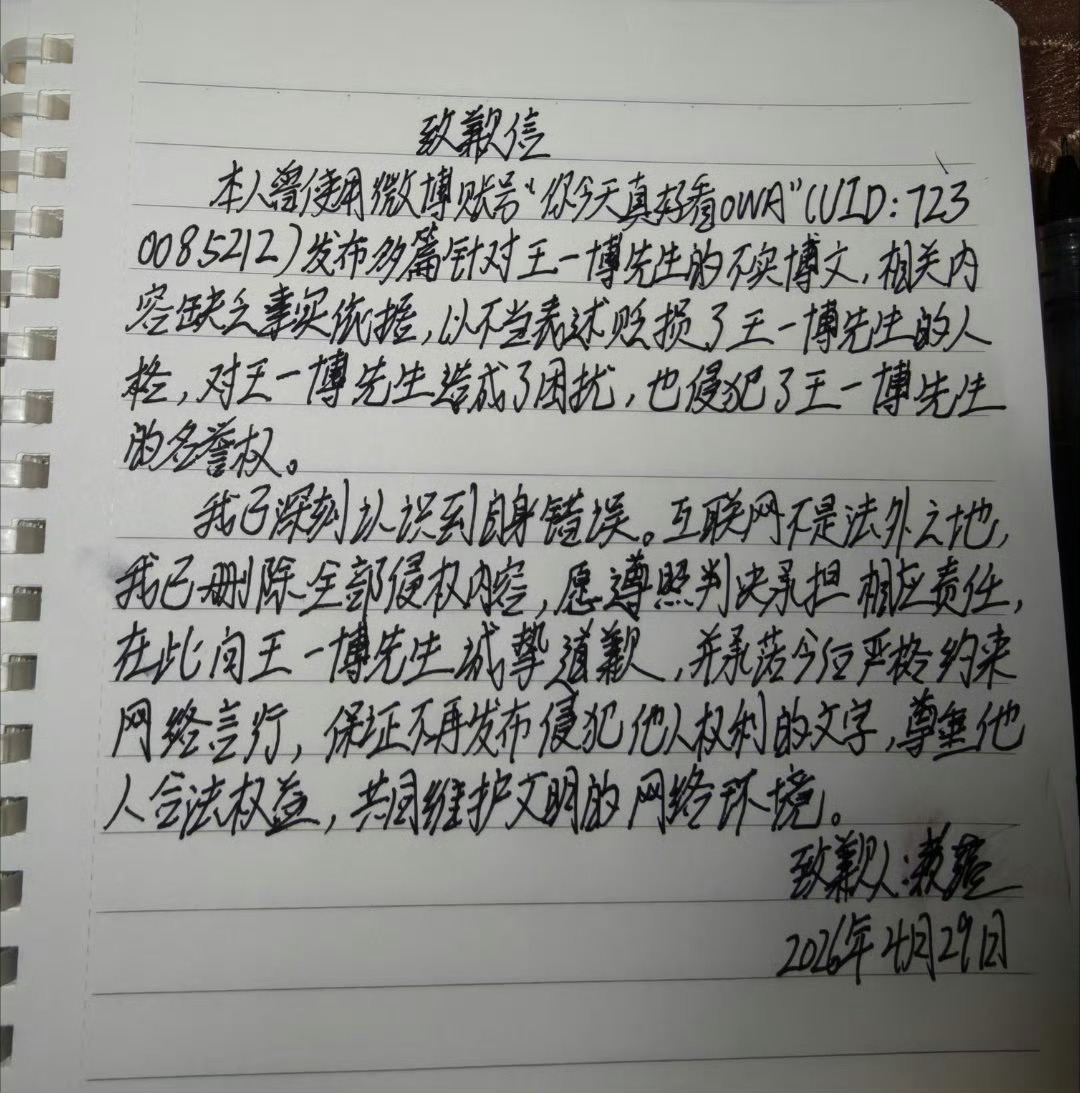 致歉信
本人曾使用微博账号“你今天真好看OWA”(UID:723
0085212)发布多篇针对王一博先生的不实博文,相关内
容缺乏事实依据,以不当表述贬损了王一博先生的人
格,对王一博先生造成了困扰,也侵犯了王一博先生
的名誉权。
我已深刻认识到自身错误。互联网不是法外之地,
我已删除全部侵权内容,愿遵照判决承担相应责任,
在此向王一博先生诚挚道歉,并承诺今后严格约束
网络言行,保证不再发布侵犯他人权利的文字,尊重他
人合法权益,共同维护文明的网络环境。
致歉人:
2026年4月29日